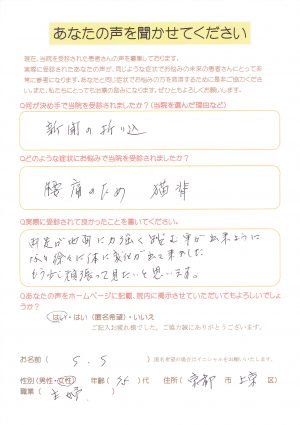 あなたの声を聞かせてください
現在、当院を受診された患者さんの声を募集しております。
実際に受診されたあなたの声が、同じような症状でお悩みの未来の患者さんにとって非
常に参考になります。あなたと同じ症状でお悩みの方を救済するために是非ご協力くださ
い。また、私たちにとってもお声の励みになります。ぜひともよろしくお願いします。
Q何が決め手で当院を受診されましたか?(当院を選んだ理由など)
新聞の折り込
Qどのような症状にお悩みで当院を受診されましたか?
腰痛のため 猫背
Q実際に受診されて良かったことを書いてください。
両足が地面に力強く踏む事が出来ように
なり徐々に体に変化が出て来ました
もう少し頑張って見たいと思います。
Qあなたの声をホームページに記載、院内に掲示させていただいてもよろしいでしょう
か?
はい・はい(匿名希望)・いいえ
ご記入お疲れ様でした。ご協力誠にありがとうございます。
お名前( S.S ) 匿名希望の場合はイニシャルをお願いいたします。
性別(男性・女性) 年齢( )代 住所( 京都 市 上京 区)
職業( 主婦 )